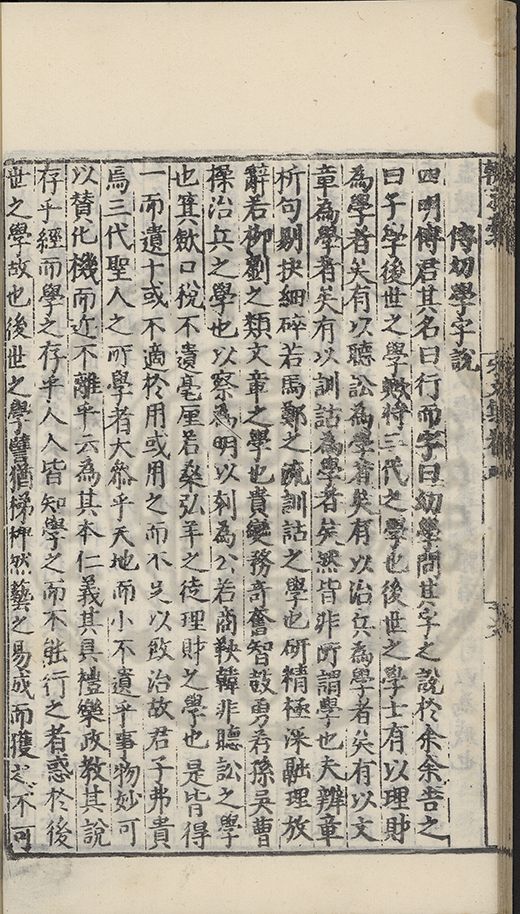 傅幼學字說
四明傅君其名曰行而字曰幼學問其字之說於余余告之
曰子學後世之學歟將三代之學也後世之學士有以理財
為學者矣有以聽訟為學者矣有以治兵為學者矣有以文
章為學者矣有以訓詁為學者矣然皆非所謂學也夫辨章
析句剔抉細碎若馬鄭之疏訓詁之學也研精極深融理放
辭若柳劉之類文章之學也貴變務奇奮智鼓勇若孫吳曹
操治兵之學也以察為明以刻為公若商鞅韓非聽訟之學
也箕歛口稅不遺毫厘若桑弘羊之徒理財之學也是皆得
一而遺十或不適於用或用之而不足以致治故君子弗貴
焉三代聖人之所學者大叅乎天地而小不遺乎事物妙可
以賛化機而近不離乎云為其本仁義其具禮樂政教其說
存乎經而學之存乎人人皆知學之而不能行之者惑於後
世之學故也後世之學譬猶稊稗然藝之易成而獲之不可